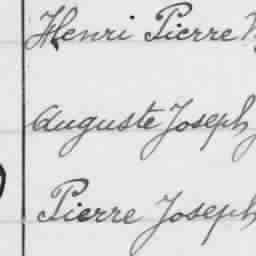 Henri Pierre
Auguste Joseph
Pierre Joseph